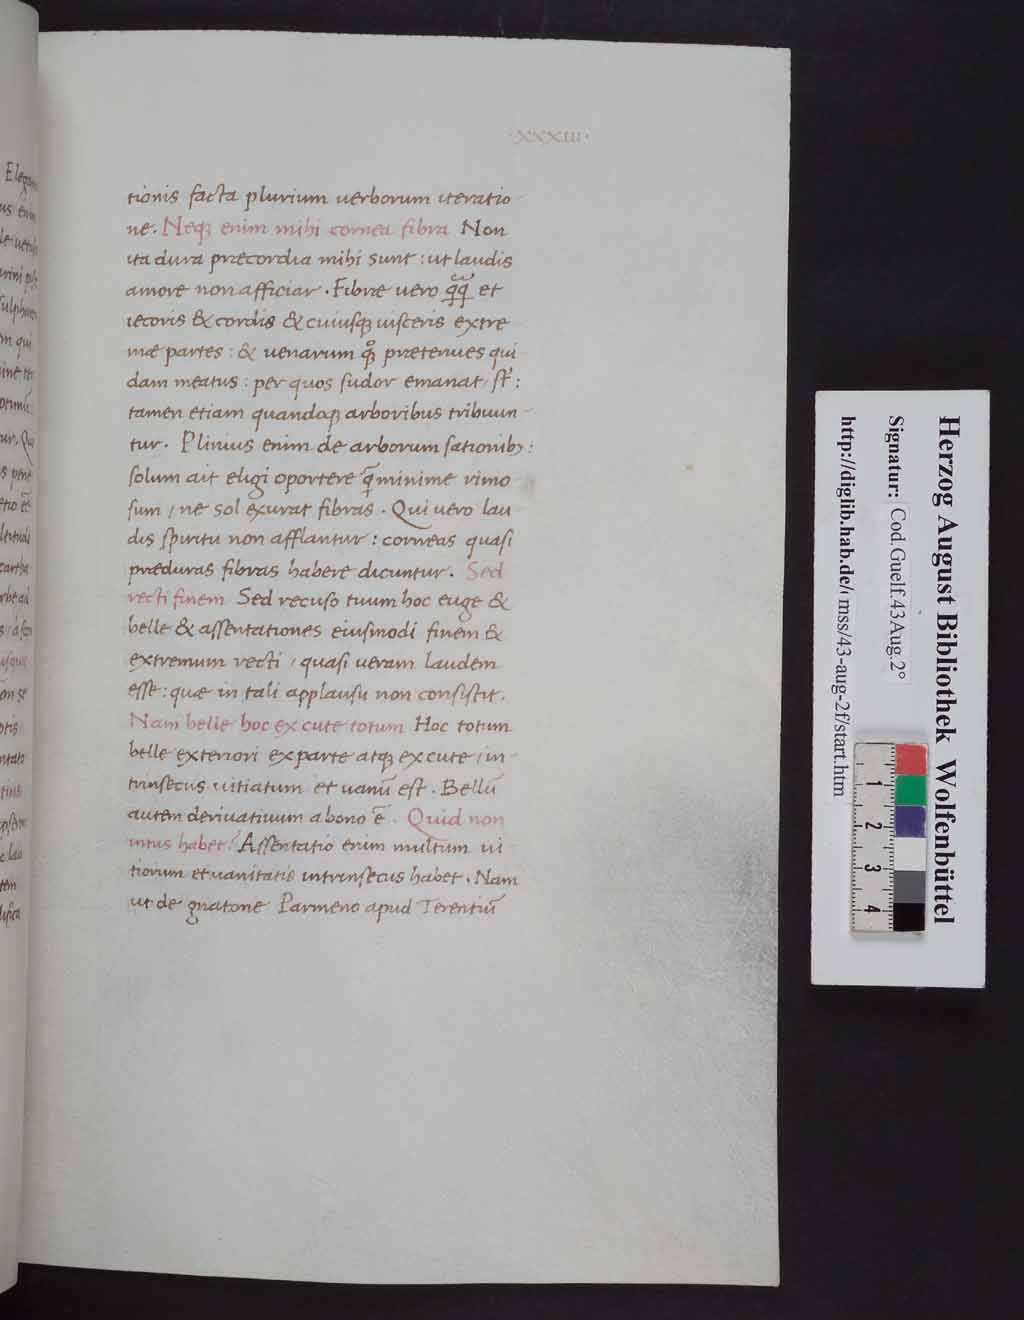 ·XXXIII·
tionis facta plurium uerborum iteratio
ne. Neqꝫ enim mihi cornea fibra Non
ita dura præcordia mihi sunt : ut laudis
amore non afficiar . Fibræ uero et
iecoris & cordis & cuiusqꝫ uisceris extre
mæ partes : & uenarum prætenues qui
dam meatus : per quos sudor emanat :
tamen etiam quandoqꝫ arboribus tribuun
tur . Plinius enim de arborum sationibꝫ :
solum ait eligi oportere q̄ minime rimo
sum / ne sol exurat fibras . Qui uero lau
dis spiritu non afflantur : corneas quasi
præduras fibras habere dicuntur . Sed
recti finem Sed recuso tuum hoc euge &
belle & assentationes eiusmodi finem &
extremum recti / quasi ueram laudem
esse : quæ in tali applausu non consistit .
Nam belle hoc excute totum Hoc totum
belle exteriori ex parte atqꝫ excute / in
trinsecus uitiatum et uanū est . Bellū
autem deriuatiuum a bono ē . Quid non
intus habet? Assentatio enim multum ui
tiorum et uanitatis intrinsecus habet . Nam
ut de gnatone Parmeno apud Terentiū
Herzog August Bibliothek Wolfenbüttel
Signatur: Cod.Guelf.43 Aug.2°
http://diglib.hab.de/ mss/43-aug-2f/start.htm
1
2
3
4